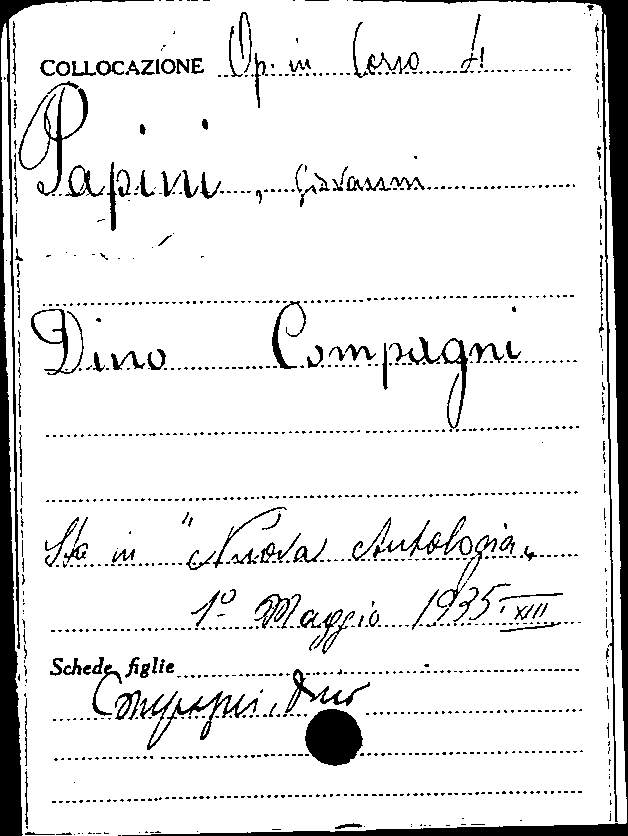 COLLOCAZIONE Op. in Corso 41
Papini, Giovanni
Dino Compagni
Sta in "Nuova Antologia"
1º Maggio 1935-XIII
Schede figlie
Compagni, Dino